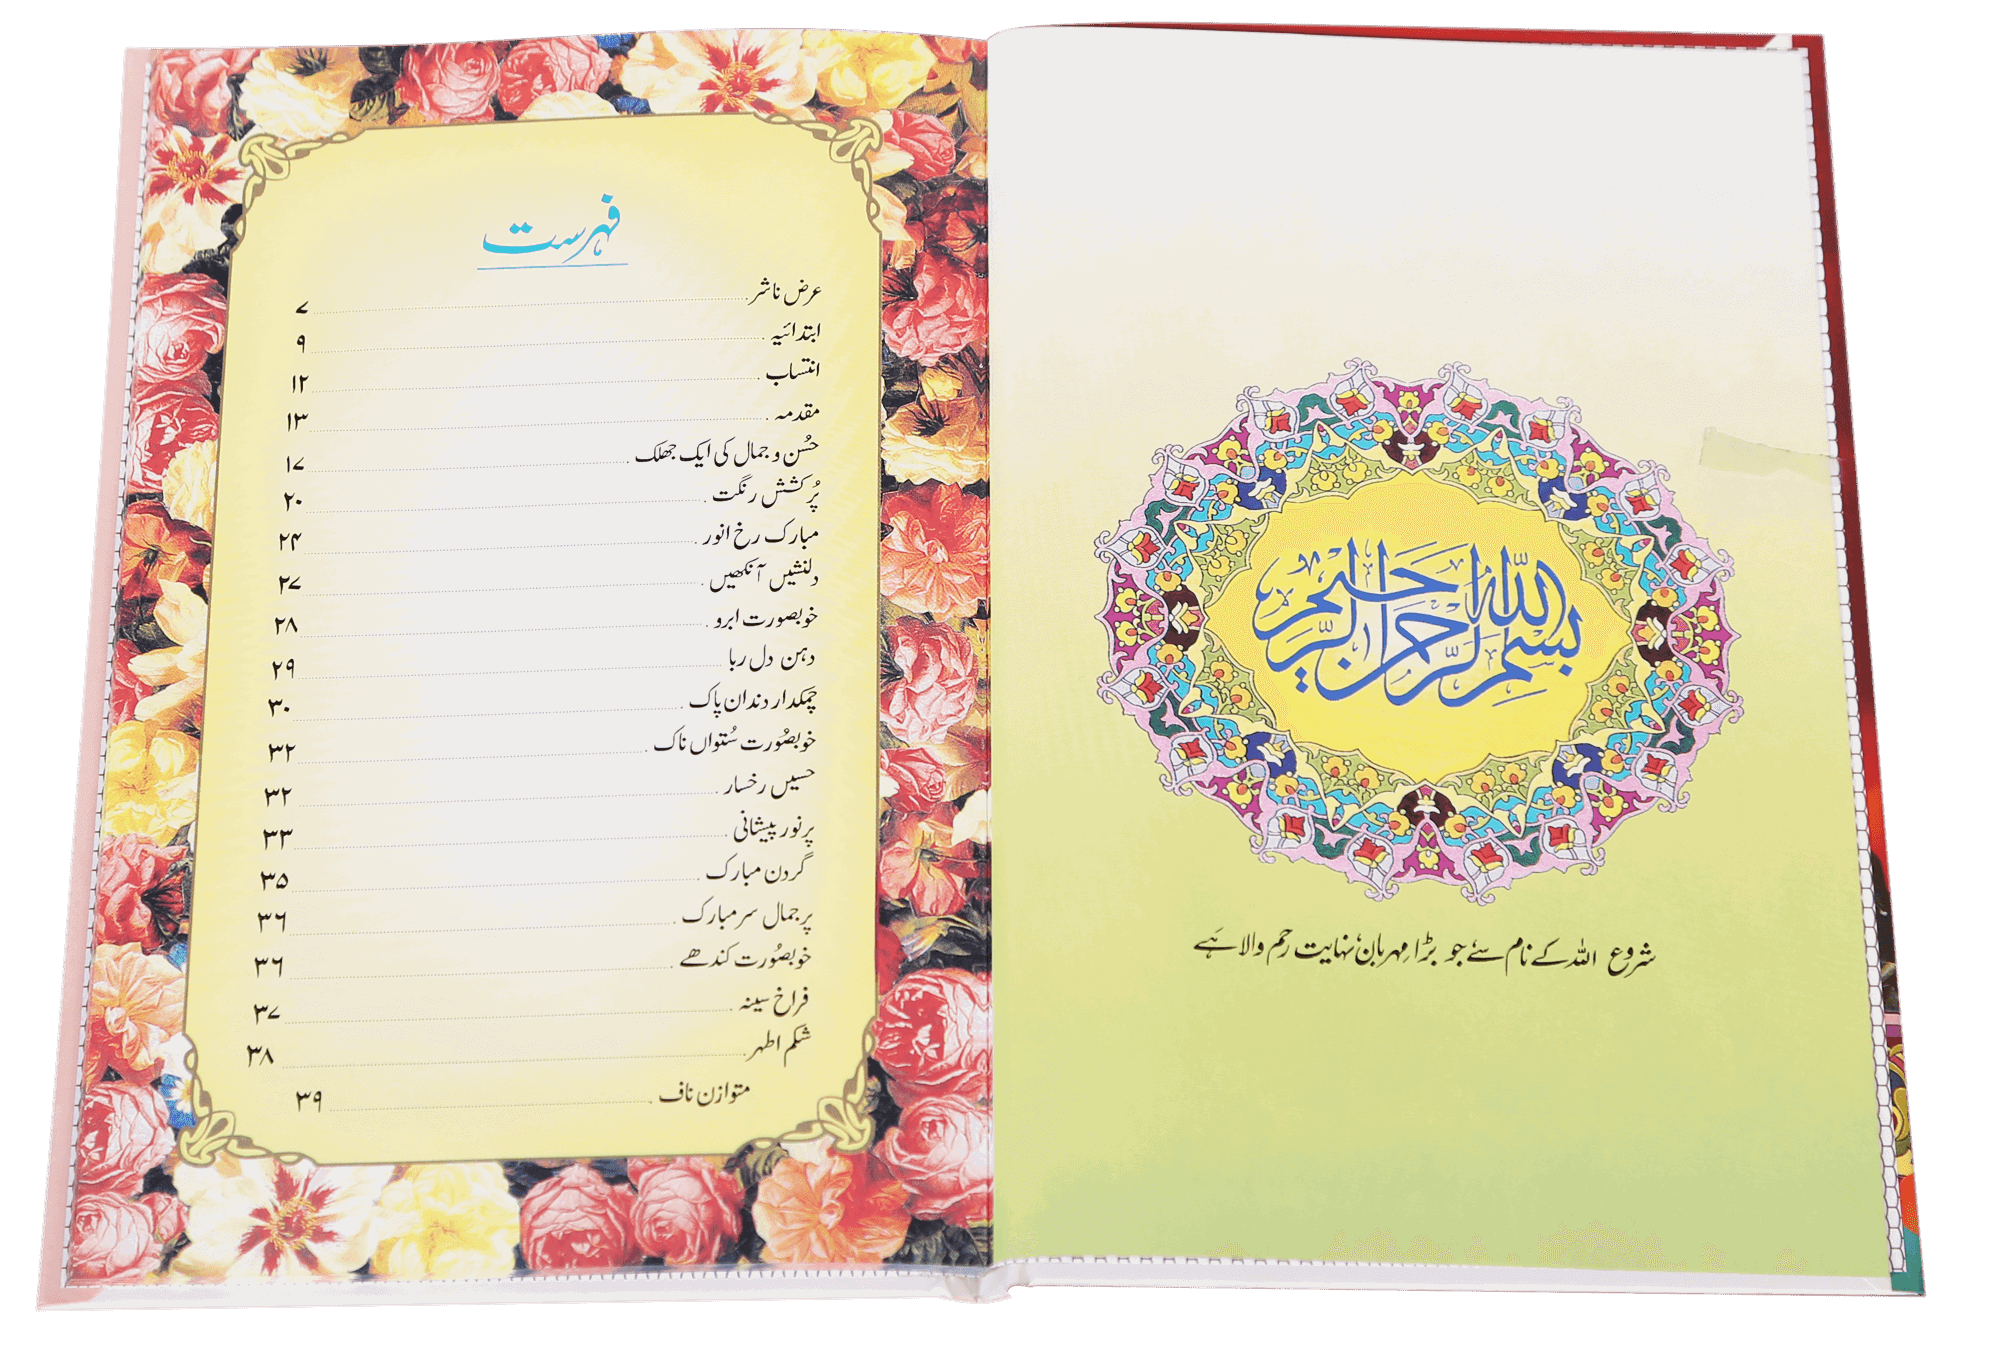 بسم الله الرحمن الرحيم
شروع اللہ کے نام سے جو بڑا مہربان، نہایت رحم والا ہے
فہرست
عرض ناشر ۷
ابتدائیہ ۹
انتساب ۱۲
مقدمہ ۱۳
حُسن و جمال کی ایک جھلک ۱۷
پُرکشش رنگت ۲۰
مبارک رخ انور ۲۴
دلنشیں آنکھیں ۲۷
خوبصورت ابرو ۲۸
دہن دل ربا ۲۹
چمکدار دندان پاک ۳۰
خوبصُورت سُتواں ناک ۳۲
حسیں رخسار ۳۲
پرنور پیشانی ۳۳
گردن مبارک ۳۵
پرجمال سر مبارک ۳۶
خوبصُورت کندھے ۳۶
فراخ سینہ ۳۷
شکم اطہر ۳۸
متوازن ناف ۳۹